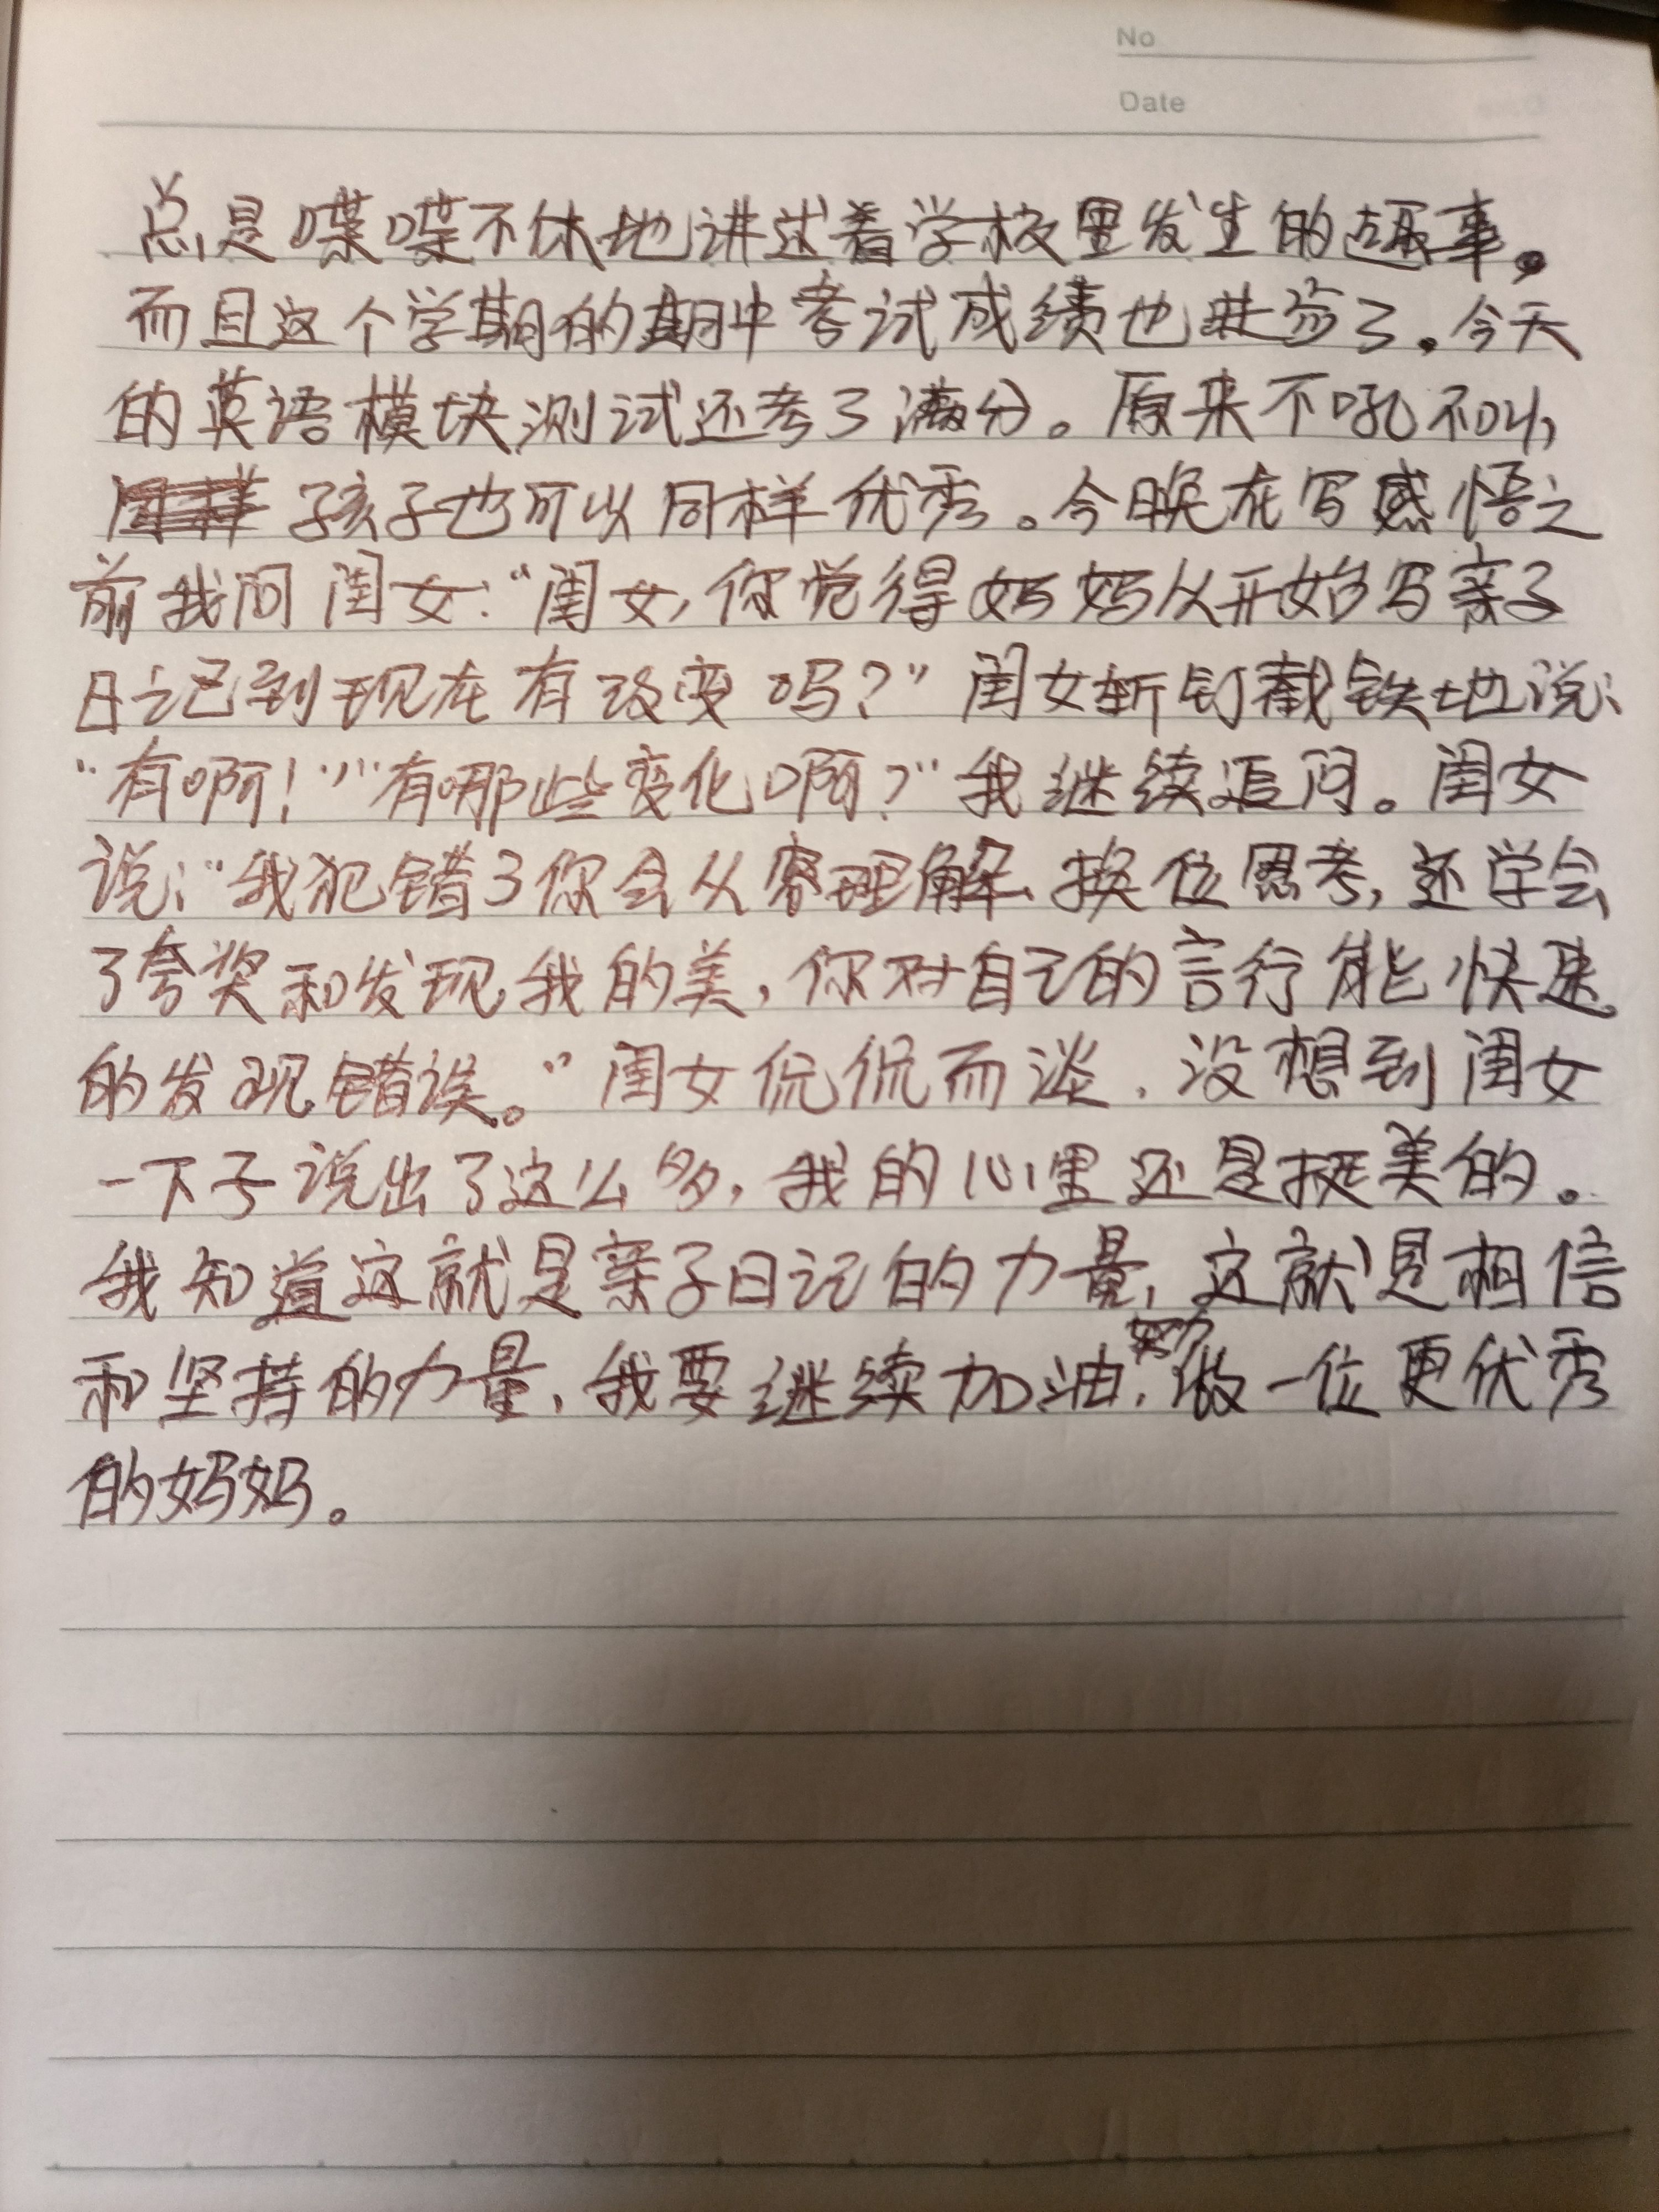 No
Date
总是喋喋不休地讲述着学校里发生的趣事。
而且这个学期的期中考试成绩也进步了。今天
的英语模块测试还考了满分。原来不吼不叫,
孩子也可以同样优秀。今晚在写感悟之
前我问闺女:“闺女,你觉得妈妈从开始写亲子
日记到现在有改变吗?”闺女斩钉截铁地说:
“有啊!”“有哪些变化啊?”我继续追问。闺女
说:“我犯错了你会从容理解、换位思考,还学会
了夸奖和发现我的美,你对自己的言行能快速
的发现错误。”闺女侃侃而谈,没想到闺女
一下子说出了这么多,我的心里还是挺美的。
我知道这就是亲子日记的力量,这就是相信
和坚持的力量,我要继续加油,努力做一位更优秀
的妈妈。